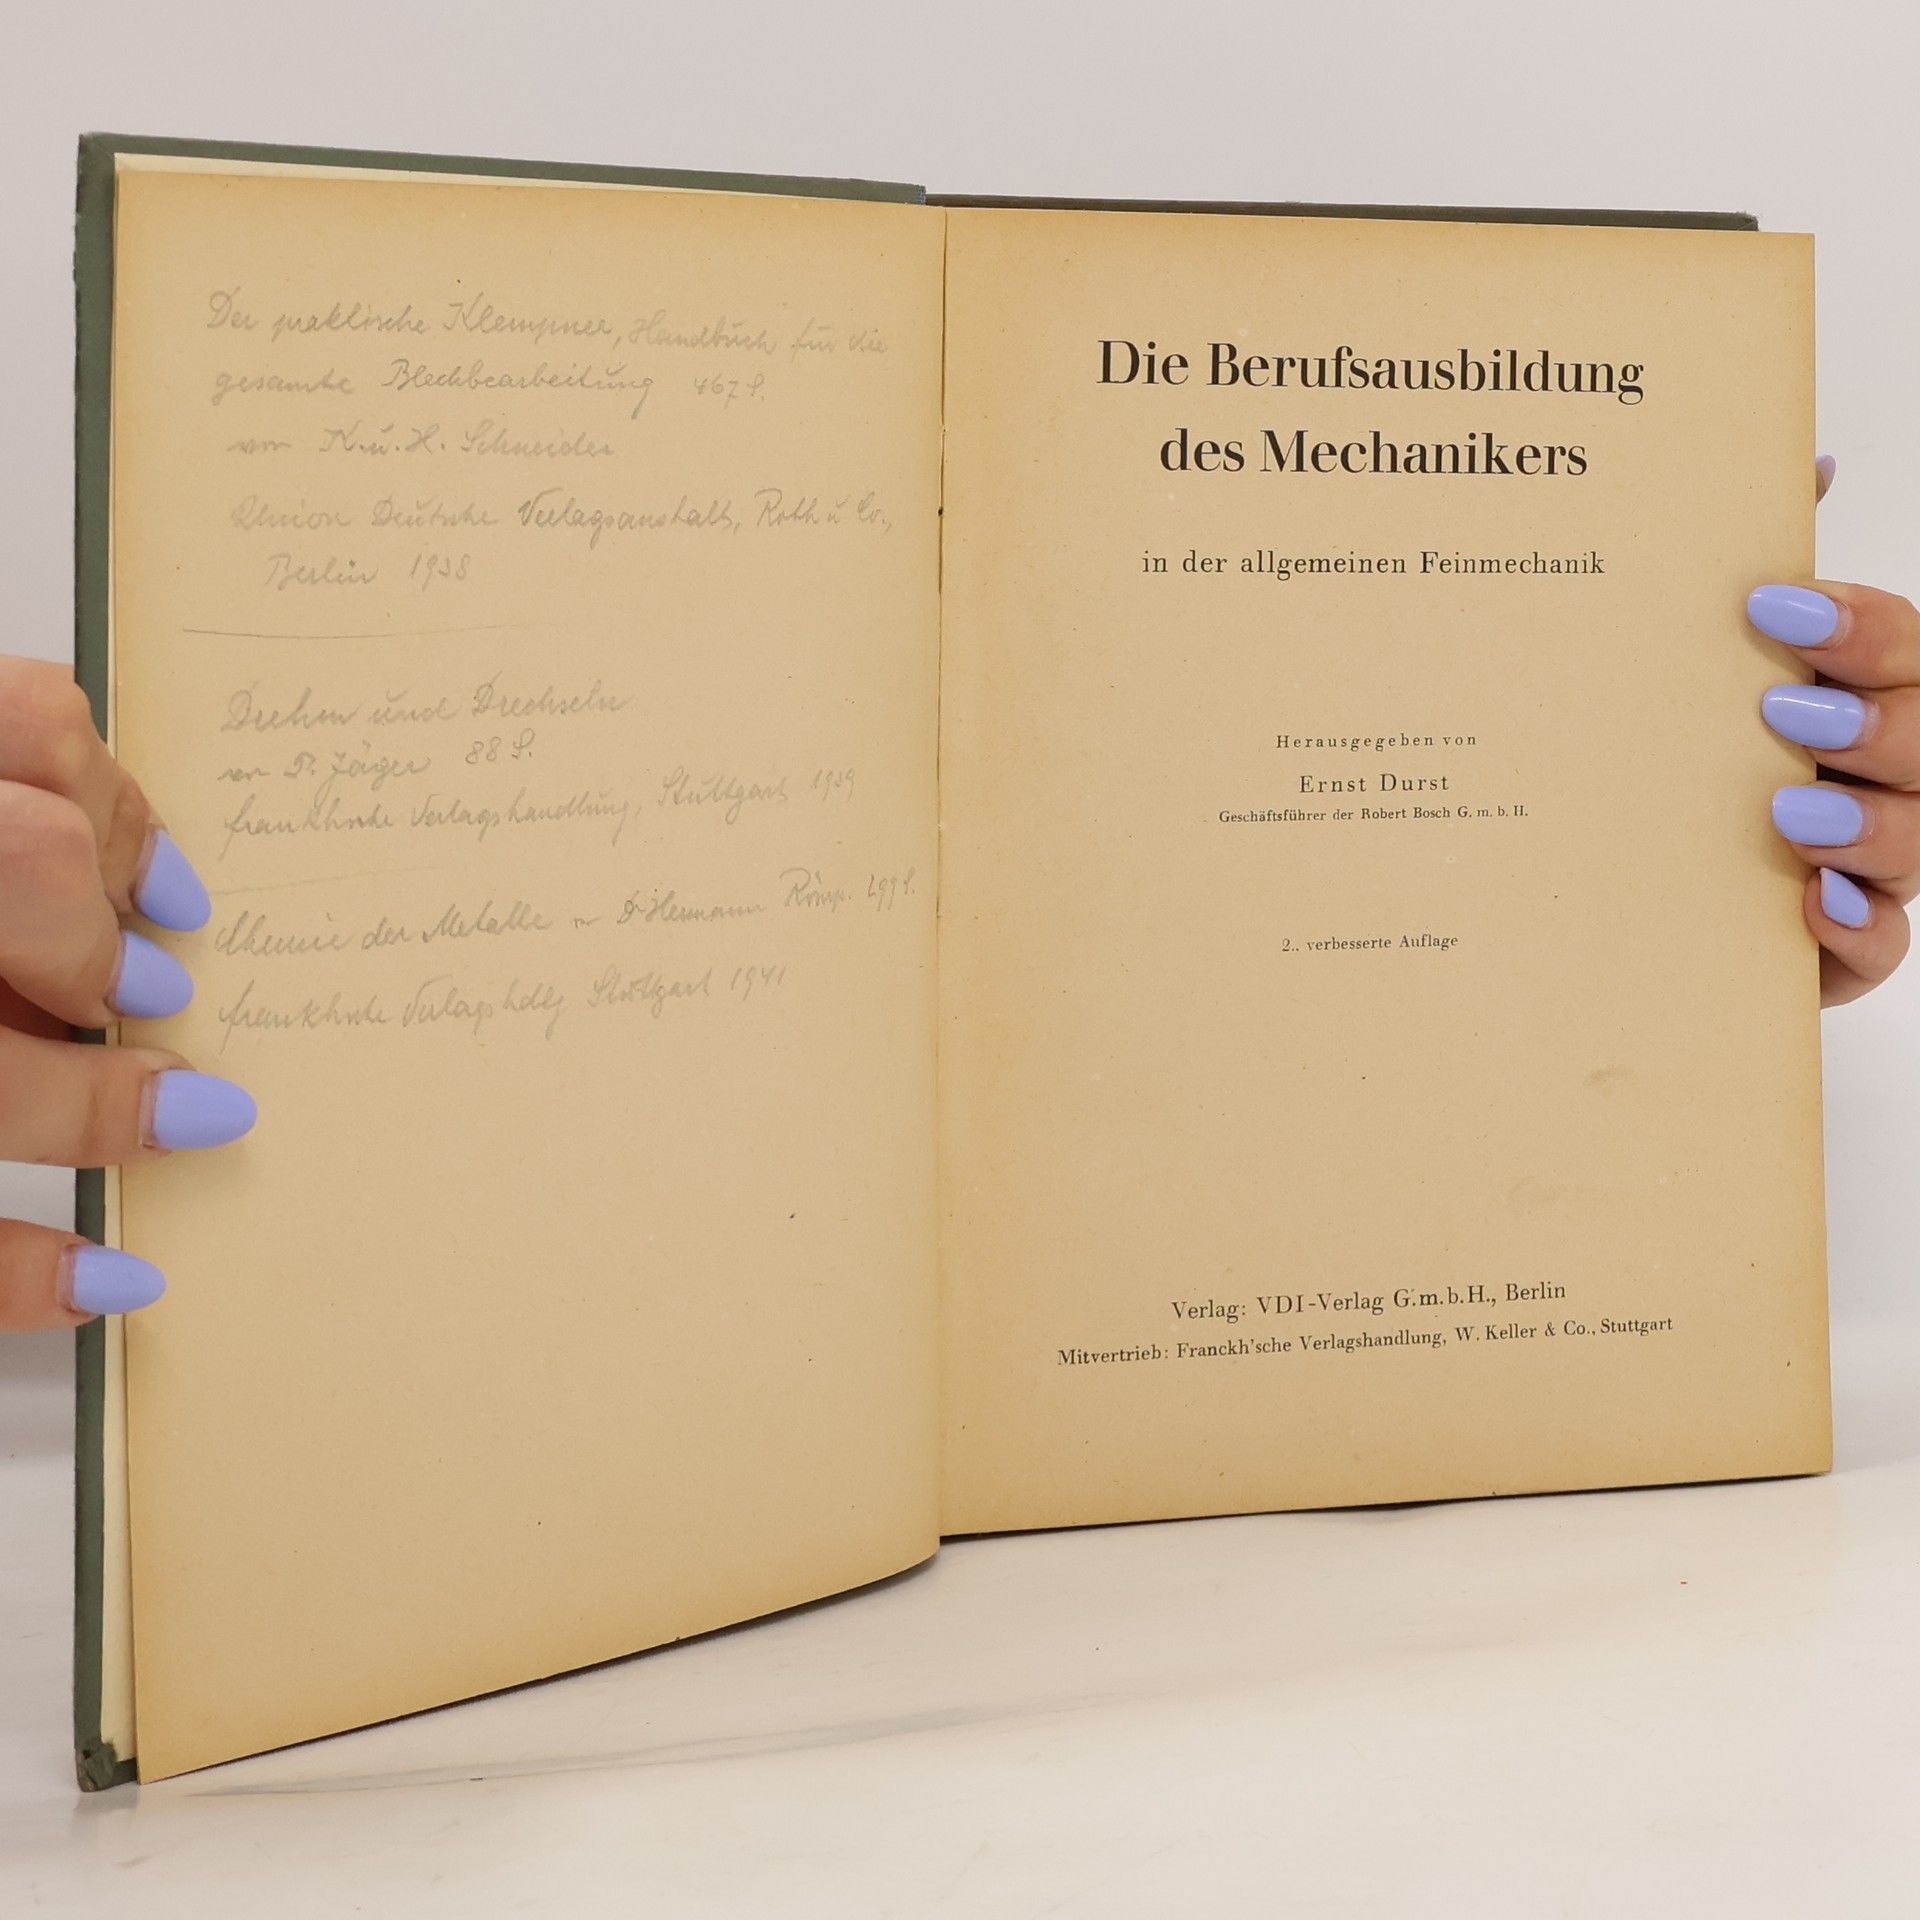 Der praktische Klempner, Handbuch für die
gesamte Blechbearbeitung 467 S.
von K. u. H. Schneider
Union Deutsche Verlagsanstalt, Roth u Co.,
Berlin 1938
Drehen und Drechseln
von Jäger 88 S.
Franckhsche Verlagshandlung, Stuttgart 1939
Chemie der Metalle Dr Hermann Römp. 299 S.
Franckhsche Verlagshdlg Stuttgart 1941
Die Berufsausbildung
des Mechanikers
in der allgemeinen Feinmechanik
Herausgegeben von
Ernst Durst
Geschäftsführer der Robert Bosch G. m. b. H.
2., verbesserte Auflage
Verlag: VDI-Verlag G.m.b.H., Berlin
Mitvertrieb: Franckh'sche Verlagshandlung, W. Keller & Co., Stuttgart